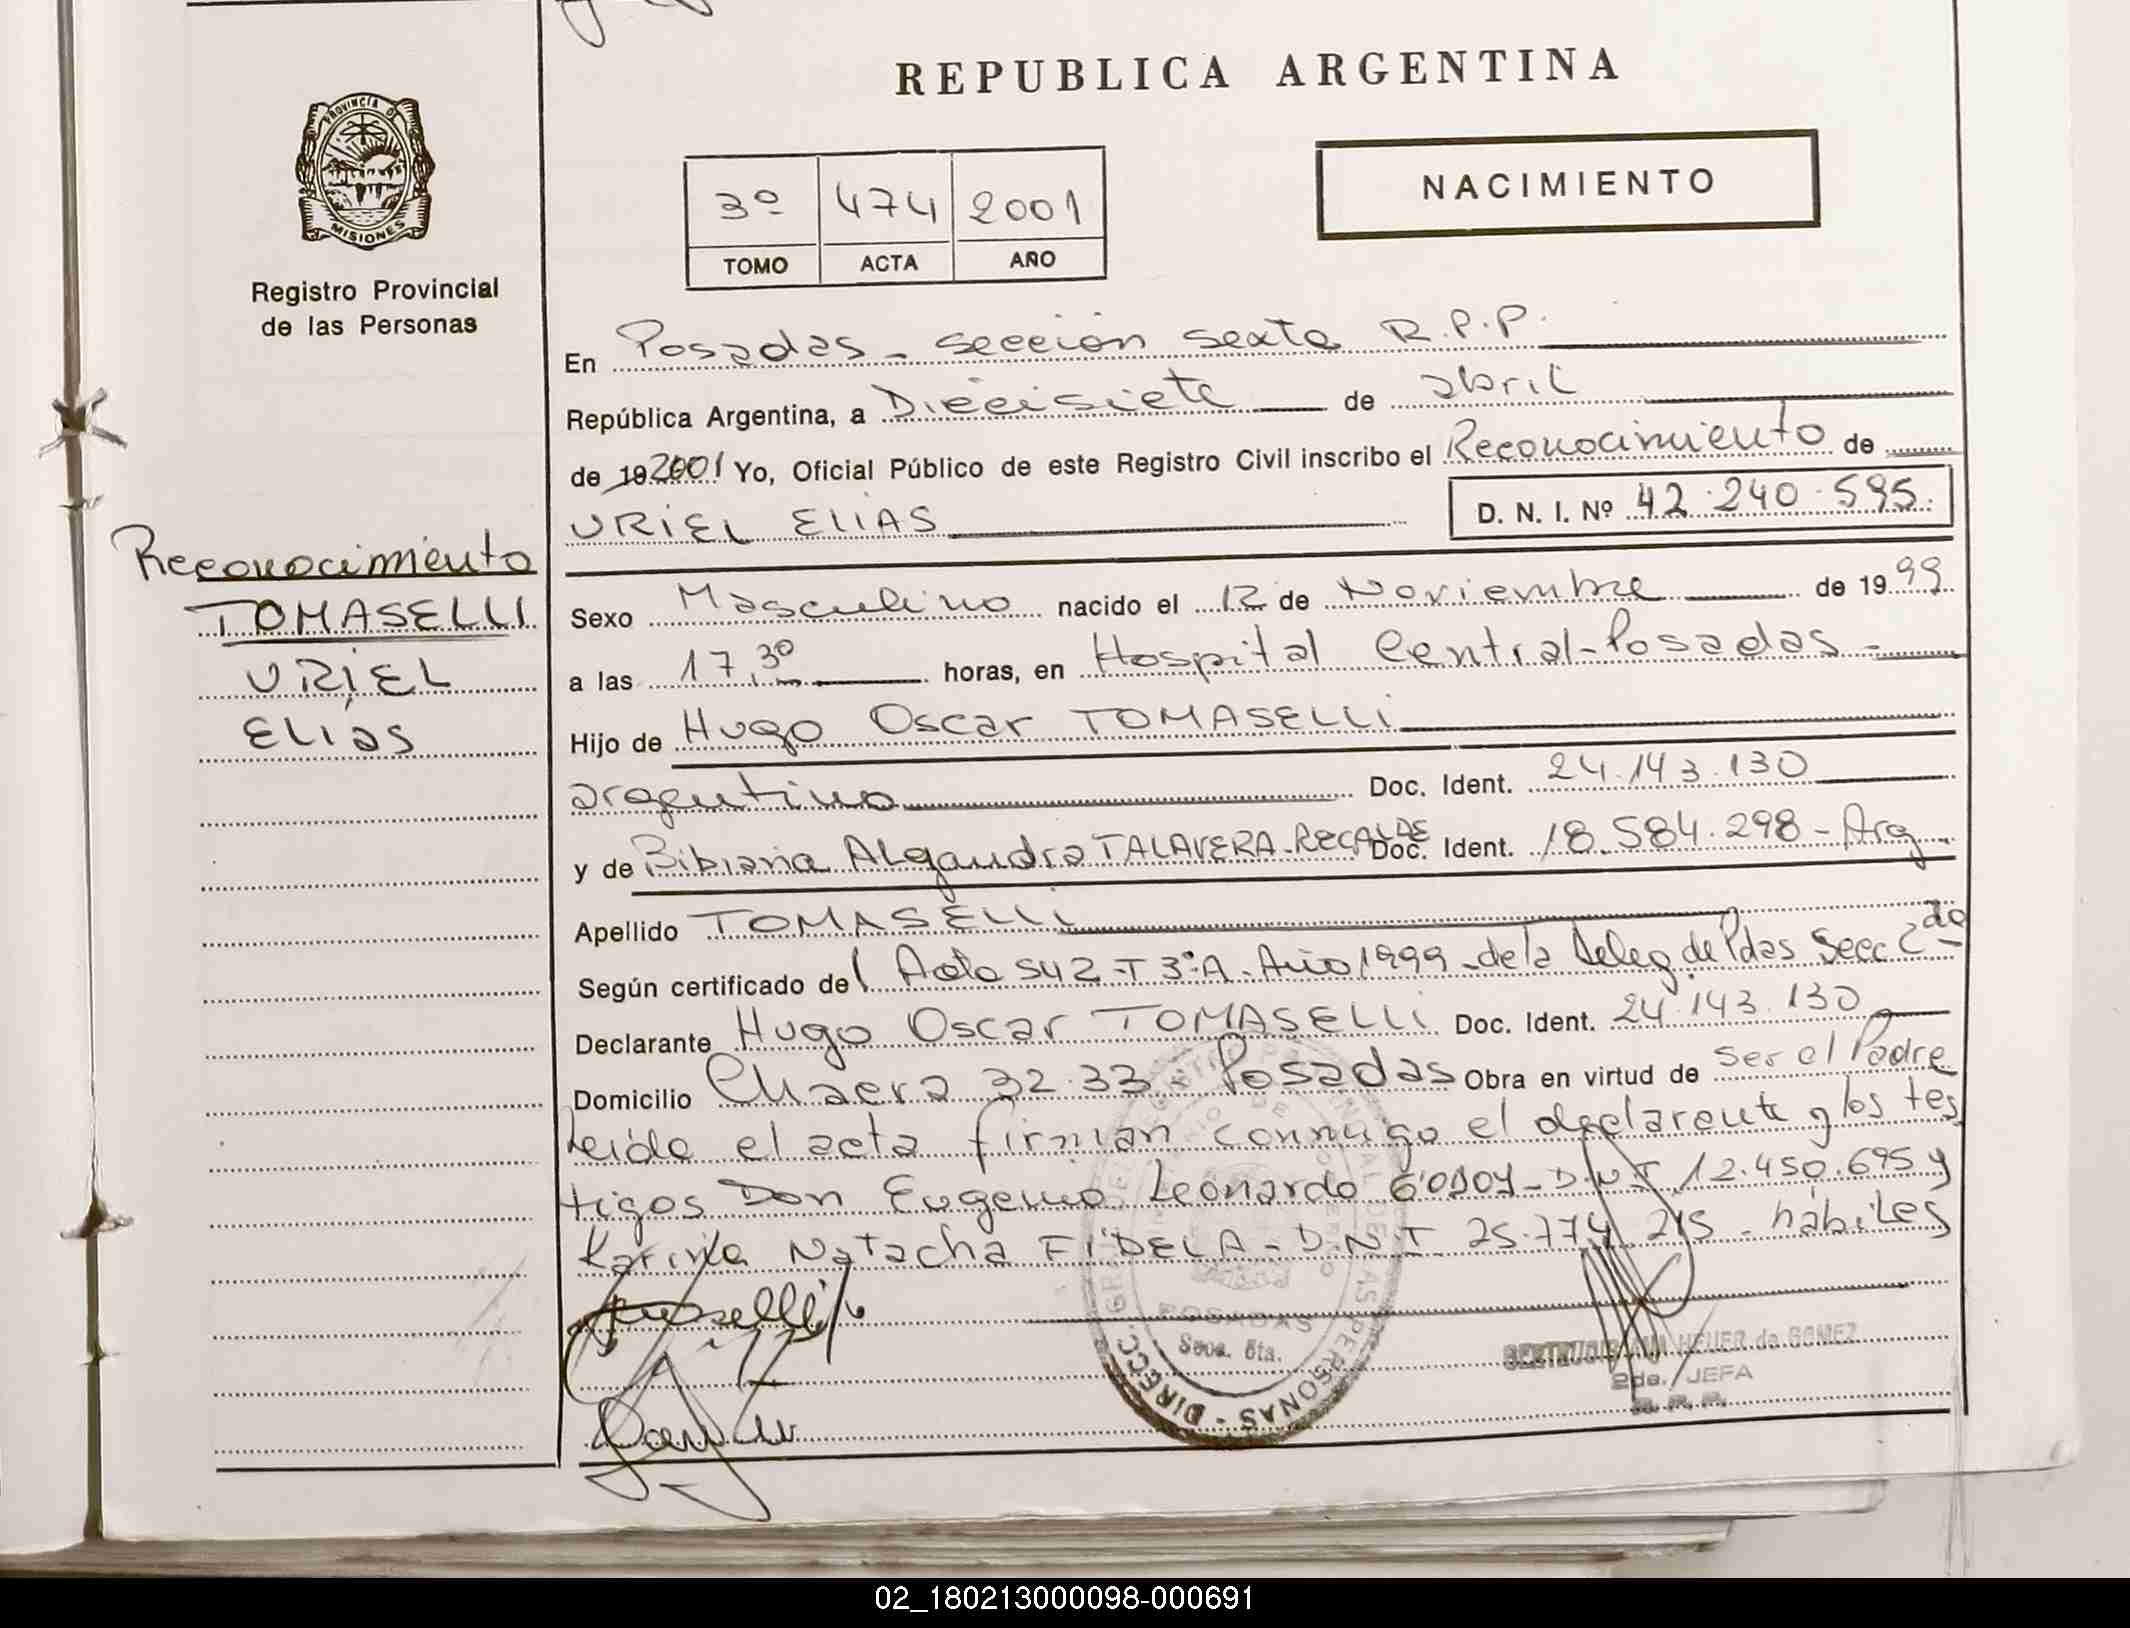 REPUBLICA ARGENTINA
PROVINCIA DE
MISIONES
Registro Provincial
de las Personas
3º 474 2001
TOMO ACTA AÑO
NACIMIENTO
En Posadas - sección sexta R.P.P.
República Argentina, a Diecisiete de abril
de 19 2001 Yo, Oficial Público de este Registro Civil inscribo el Reconocimiento de
URIEL ELIAS
D. N. I. Nº 42.240.595.
Reconocimiento
TOMASELLI
URIEL
Elias
Sexo Masculino nacido el 12 de Noviembre de 1999
a las 17,30 horas, en Hospital Central-Posadas-
Hijo de Hugo Oscar TOMASELLI
argentino Doc. Ident. 24.143.130
y de Bibiana Alejandra TALAVERA-RECALDE Doc. Ident. 18.584.298-Arg
Apellido TOMASELLI
Según certificado del Acta 542-T 3ºA-Año 1999-de la Deleg de Pdas Secc 2da
Declarante Hugo Oscar TOMASELLI Doc. Ident. 24.143.130
Domicilio Chacra 32-33-Posadas Obra en virtud de ser el Padre
Leida el acta firman conmigo el declarante y los tes
tigos Don Eugenio Leonardo GODOY-D.N.I 12.450.695 y
Karina Natacha FIDELA-D.N.I 25.774.215-hábiles
POSADAS
Secc. 6ta.
HEUER de GOMEZ
2da. JEFA
R. P. P.
02_180213000098-000691